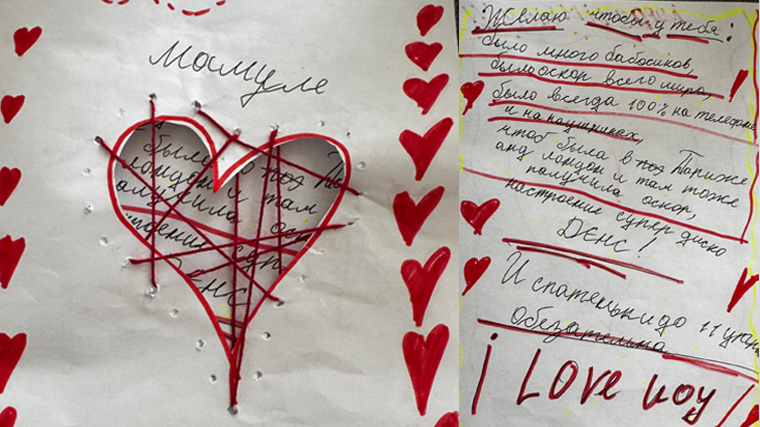 Мамуле
было
лондон и там
получила оск
ДЕНС
Желаю чтобы у тебя:
было много бабосиков,
было оскар всего мира,
было всегда 100% на телефоне
и на наушниках,
чтоб была в Париже
анд лондон и там тоже
получила оскар,
настроение супер диско
ДЕНС!
И спатеньки до 11 утра
обезательна
i LOve uoy!